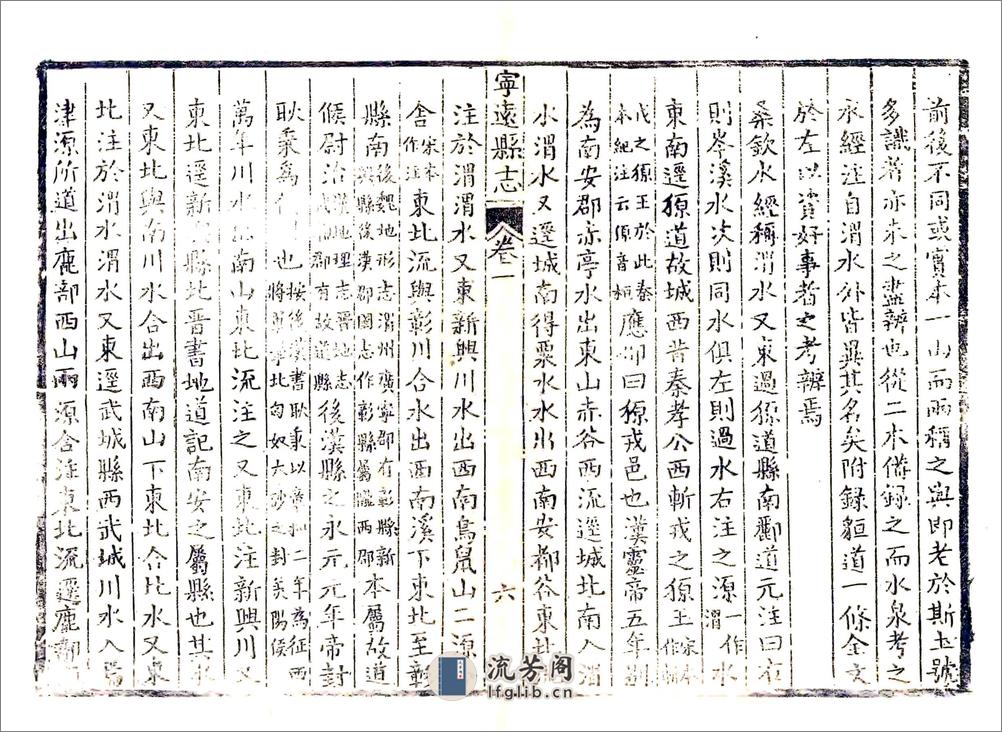 前後不同或實本一山而兩稱之與即老於斯土號
多識者亦未之盡辨也從二本俻錄之而水泉考之
水經注自渭水外皆異其名矣附錄䝠道一條全文
於左以資好事者之考辨焉
桑欽水經稱渭水又東過獂道縣南酈道元注曰右
則岑溪水次則同水俱左則過水右注之源一作渭水
東南逕獂道故城西昔秦孝公西斬戎之獂王宋本作
戎之獂王於此秦本紀注云獂音桓應卲曰獂戎邑也漢靈帝五年別
為南安郡赤亭水出東山赤谷西流逕城北南入渭
水渭水又逕城南得粟水水出西南安都谷東北
注於渭渭水又東新興川水出西南鳥鼠山二源
合宋本作注東北流與彰川合水出西南溪下東北至彰
縣南後魏地形志渭州廣寧郡有彰縣新興縣後漢郡國志作彰縣屬隴西郡本屬故道
候尉治漢地理志晉地志郡有故道縣後漢縣之永元元年帝封
耿秉為侯也按後漢書耿秉以章和二年為征西將軍擊北匈奴大破之封美陽侯
萬年川水出南山東北流注之又東北注新興川又
東北逕新興縣北晉書地道記南安之屬縣也其水
又東北與南川水合出西南山下東北合北水又東
北注於渭水渭水又東逕武城縣西武城川水入焉
津源所道出鹿部西山兩源合注東北流逕鹿部
寧遠縣志
卷一
六
流芳阁
lfglib.cn